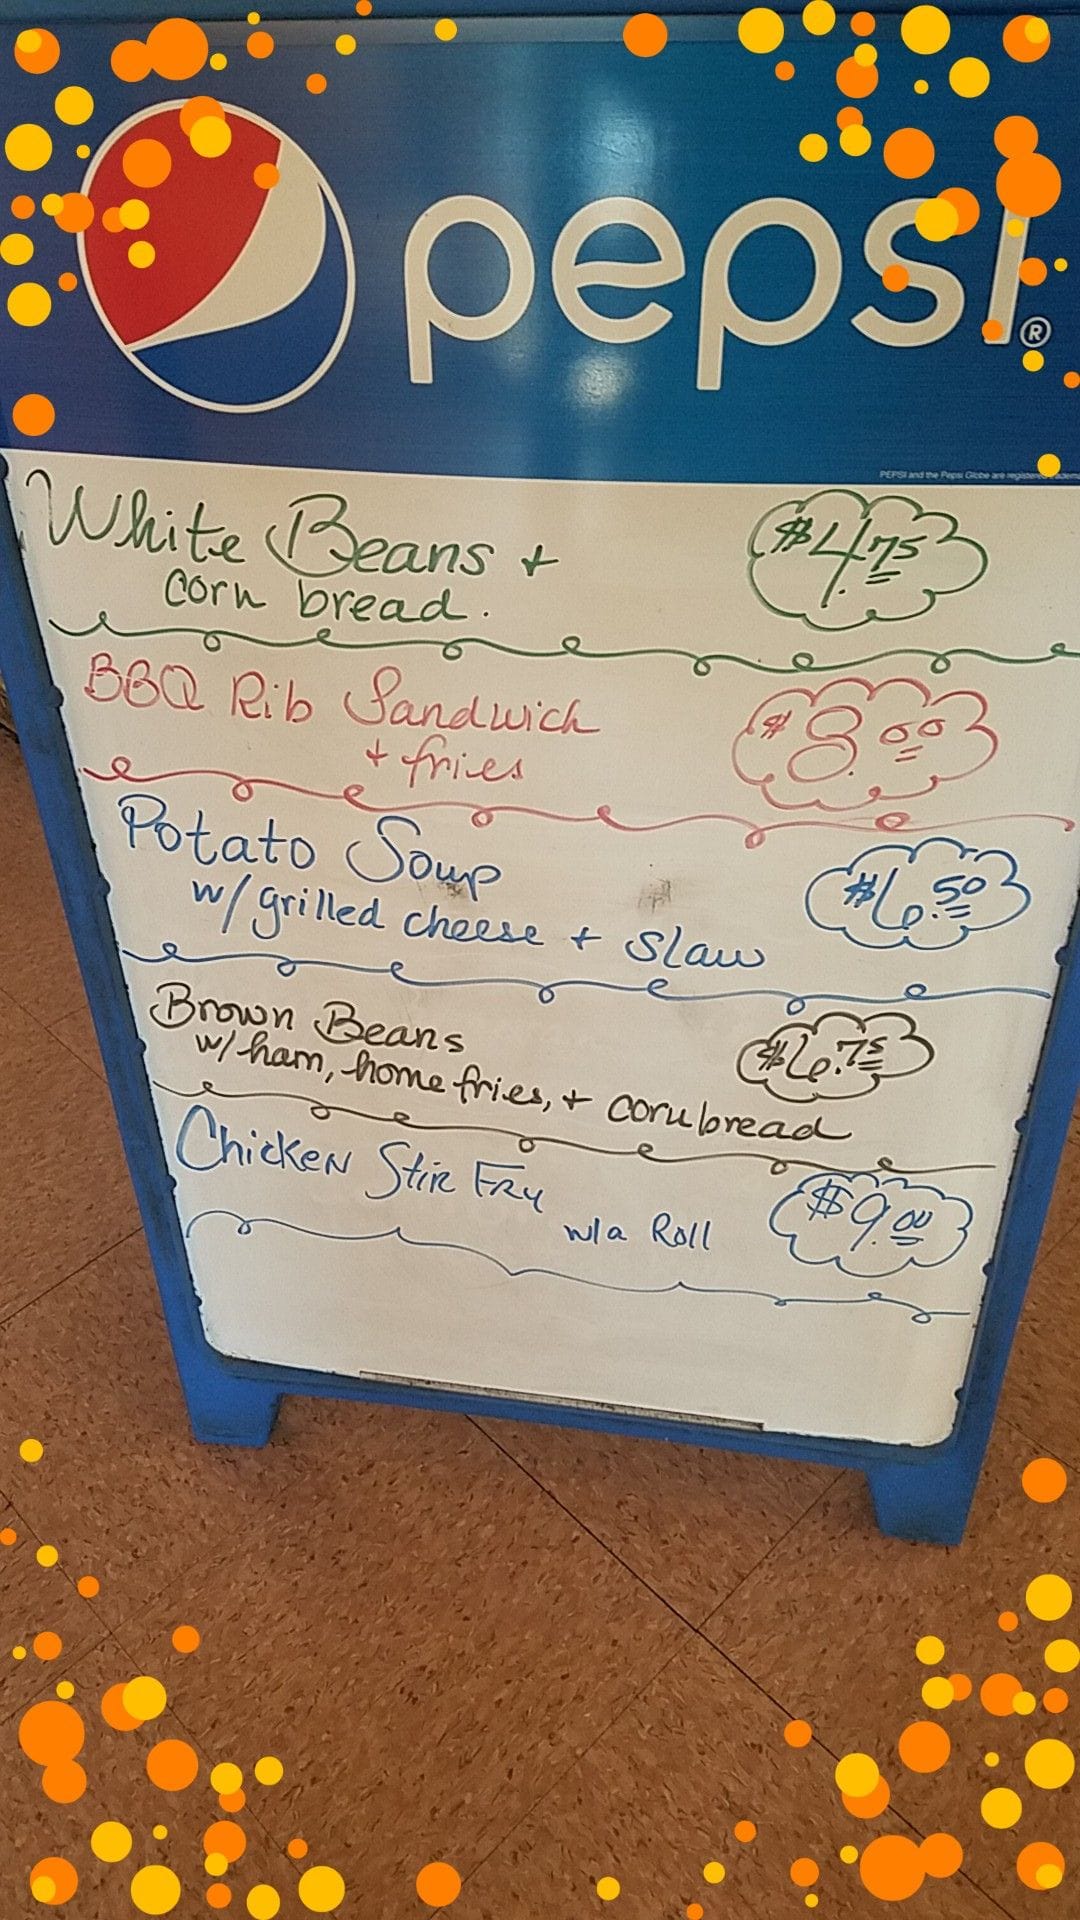 pepsi®
PEPSI and the Pepsi Globe are registered
White Beans + $4.75
corn bread.
BBQ Rib Sandwich $8.00
+ fries
Potato Soup $6.50
w/ grilled cheese + slaw
Brown Beans $6.75
w/ ham, home fries, + cornbread
Chicken Stir Fry $9.00
w/a Roll